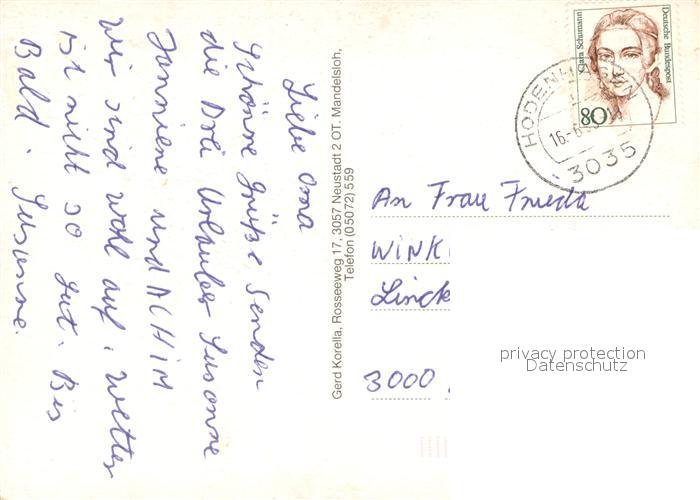 Liebe Oma
Schöne Grüße senden
die Drei Urlauber Susanne
Janniene und ACHIM
wir sind wohl auf, Wetter
ist nicht so gut. Bis
Bald. Susanne.
Gerd Korella, Rosseeweg 17, 3057 Neustadt 2 OT. Mandelsloh,
Telefon (05072) 559
Clara Schumann
Deutsche Bundespost
80
HODENH
16.-6
3035
An Frau Frieda
WINK
Linck
3000
privacy protection
Datenschutz